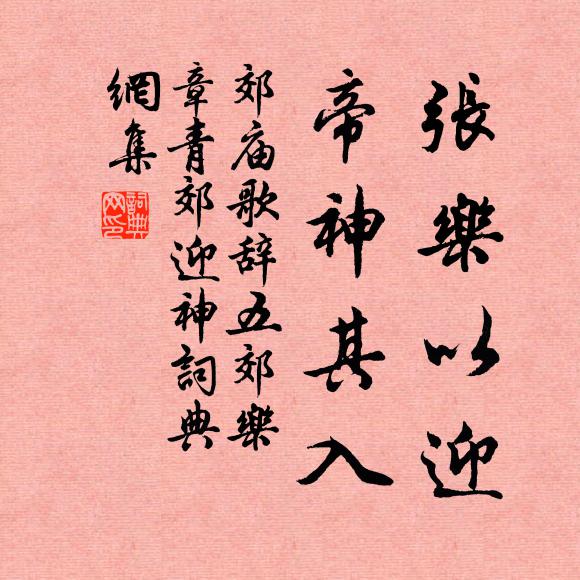 張樂以迎
帝神其入
郊庙歌辞五郊樂
章青郊迎神詞典
網集
詞典
网印